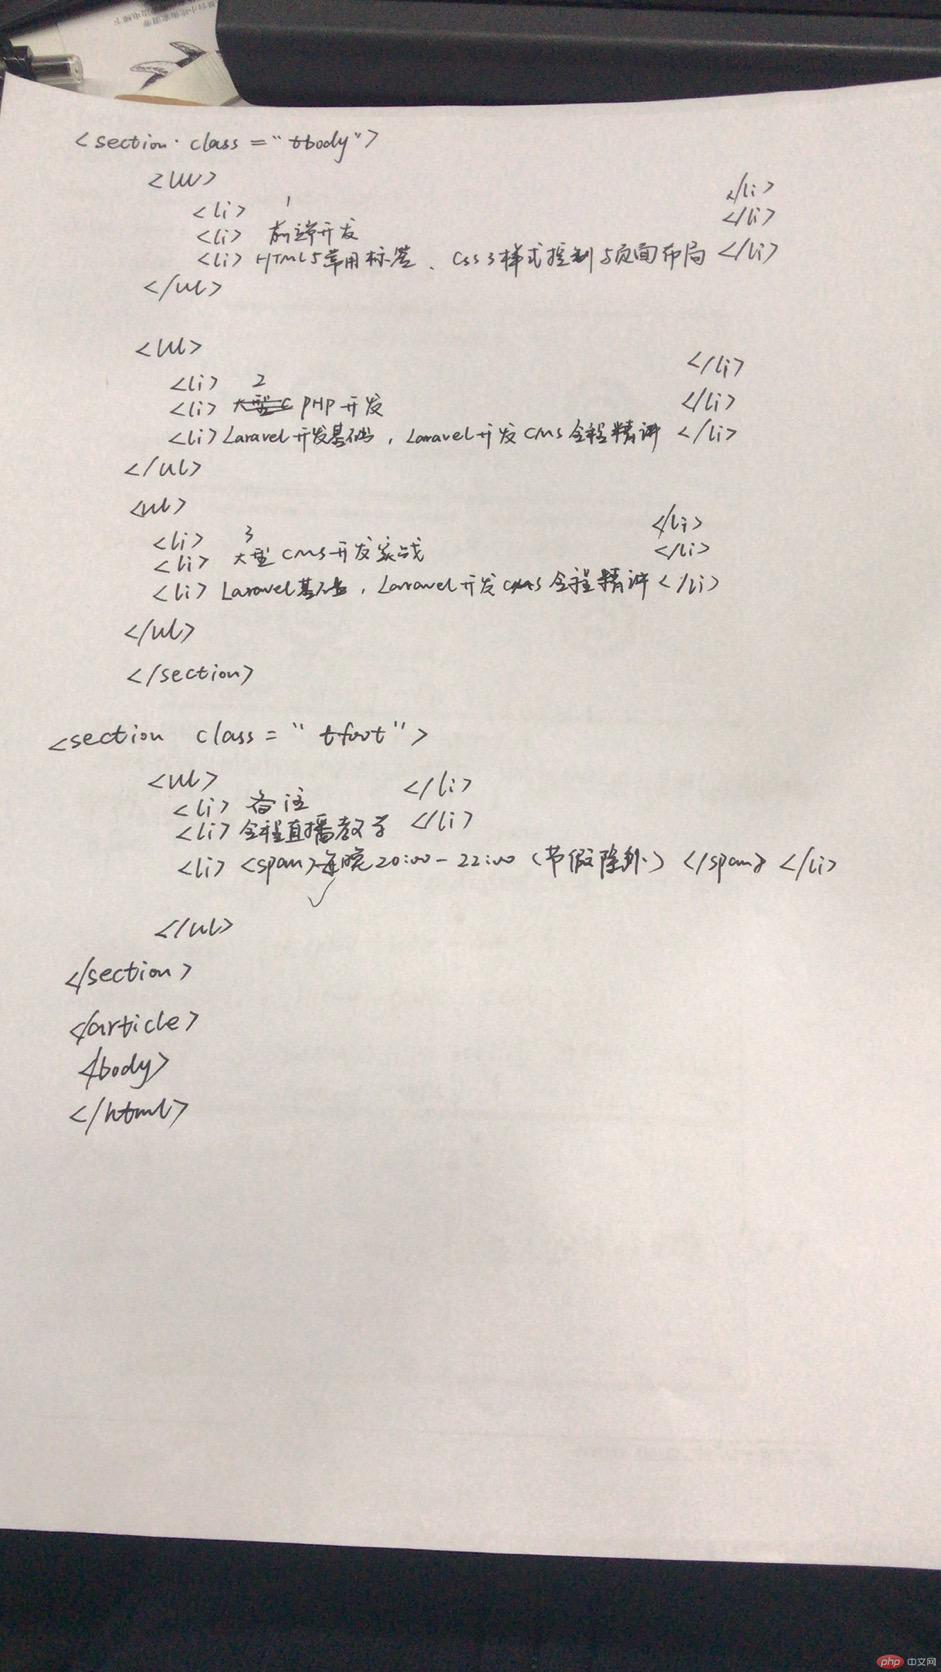 <section class="tbody">
<ul>
<li> 1 </li>
<li> 前端开发 </li>
<li> HTML5常用标签、CSS3样式控制与页面布局 </li>
</ul>
<ul>
<li> 2 </li>
<li> PHP开发 </li>
<li> Laravel开发基础,Laravel开发CMS全程精讲 </li>
</ul>
<ul>
<li> 3 </li>
<li> 大型CMS开发实战 </li>
<li> Laravel基础,Laravel开发CMS全程精讲 </li>
</ul>
</section>
<section class="tfoot">
<ul>
<li> 备注 </li>
<li> 全程直播教学 </li>
<li> <span>每晚20:00-22:00(节假除外)</span> </li>
</ul>
</section>
</article>
</body>
</html>
php 中文网